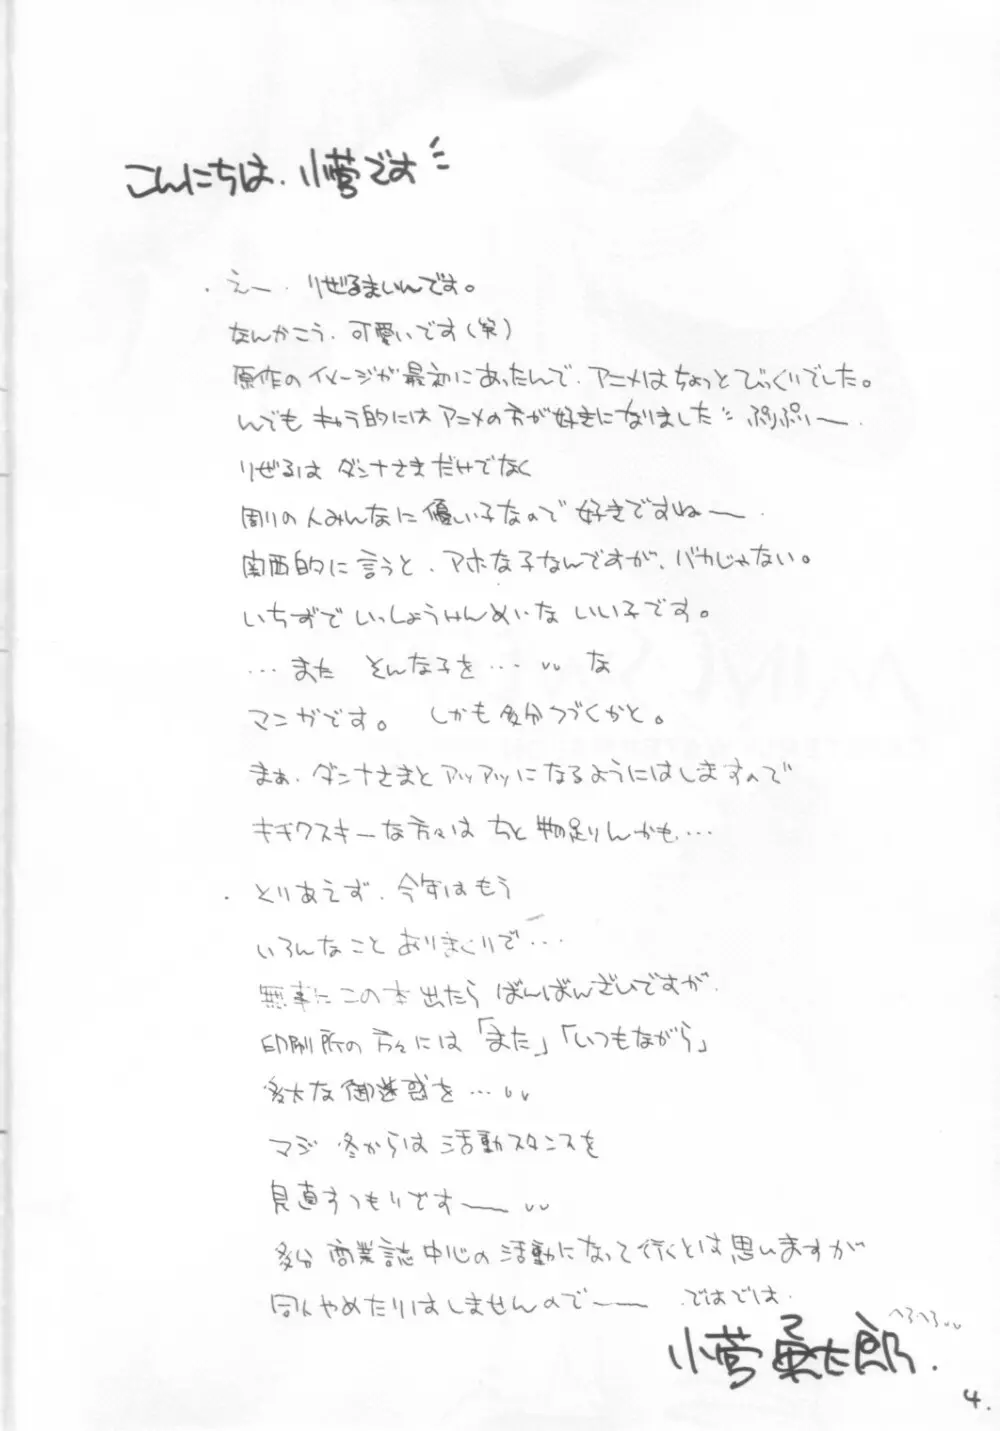 こんにちは、小菅です
・えー、りぜるまいんです。
なんかこう、可愛いです(笑)
原作のイメージが最初にあったんで、アニメはちょっとびっくりでした。
んでも キャラ的にはアニメの方が好きになりました ぷりぷりー
りぜるは ダンナさまだけでなく
周りの人みんなに優しい子なので 好きですねー
関西的に言うと、アホな子なんですが、バカじゃない。
いちずで いっしょうけんめいな いい子です。
…また そんな子を… な
マンガです。 しかも多分つづくかと。
まぁ、ダンナさまとアツアツになるようにはしますので
キチクスキーな方々は ちと物足りんかも…
・とりあえず、今年はもう
いろんなことありまくりで…
無事にこの本出たら ばんばんざいですが、
印刷所の方々には「また」「いつもながら」
多大な御迷惑を…
マジ 冬からは 活動スタンスを
見直すつもりですー
多分 商業誌中心の活動になって行くとは思いますが
同人やめたりはしませんのでー ではでは。
へろへろ
小菅 勇太郎.
4.